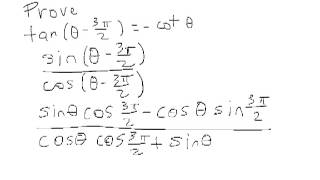 Prove
tan(θ - 3π/2) = - cot θ
sin(θ - 3π/2)
cos(θ - 3π/2)
sinθ cos 3π/2 - cos θ sin 3π/2
cosθ cos 3π/2 + sinθ